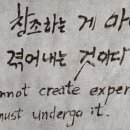 창조하는 게 아
겪어내는 것이다
nnot create exper
must undergo it.